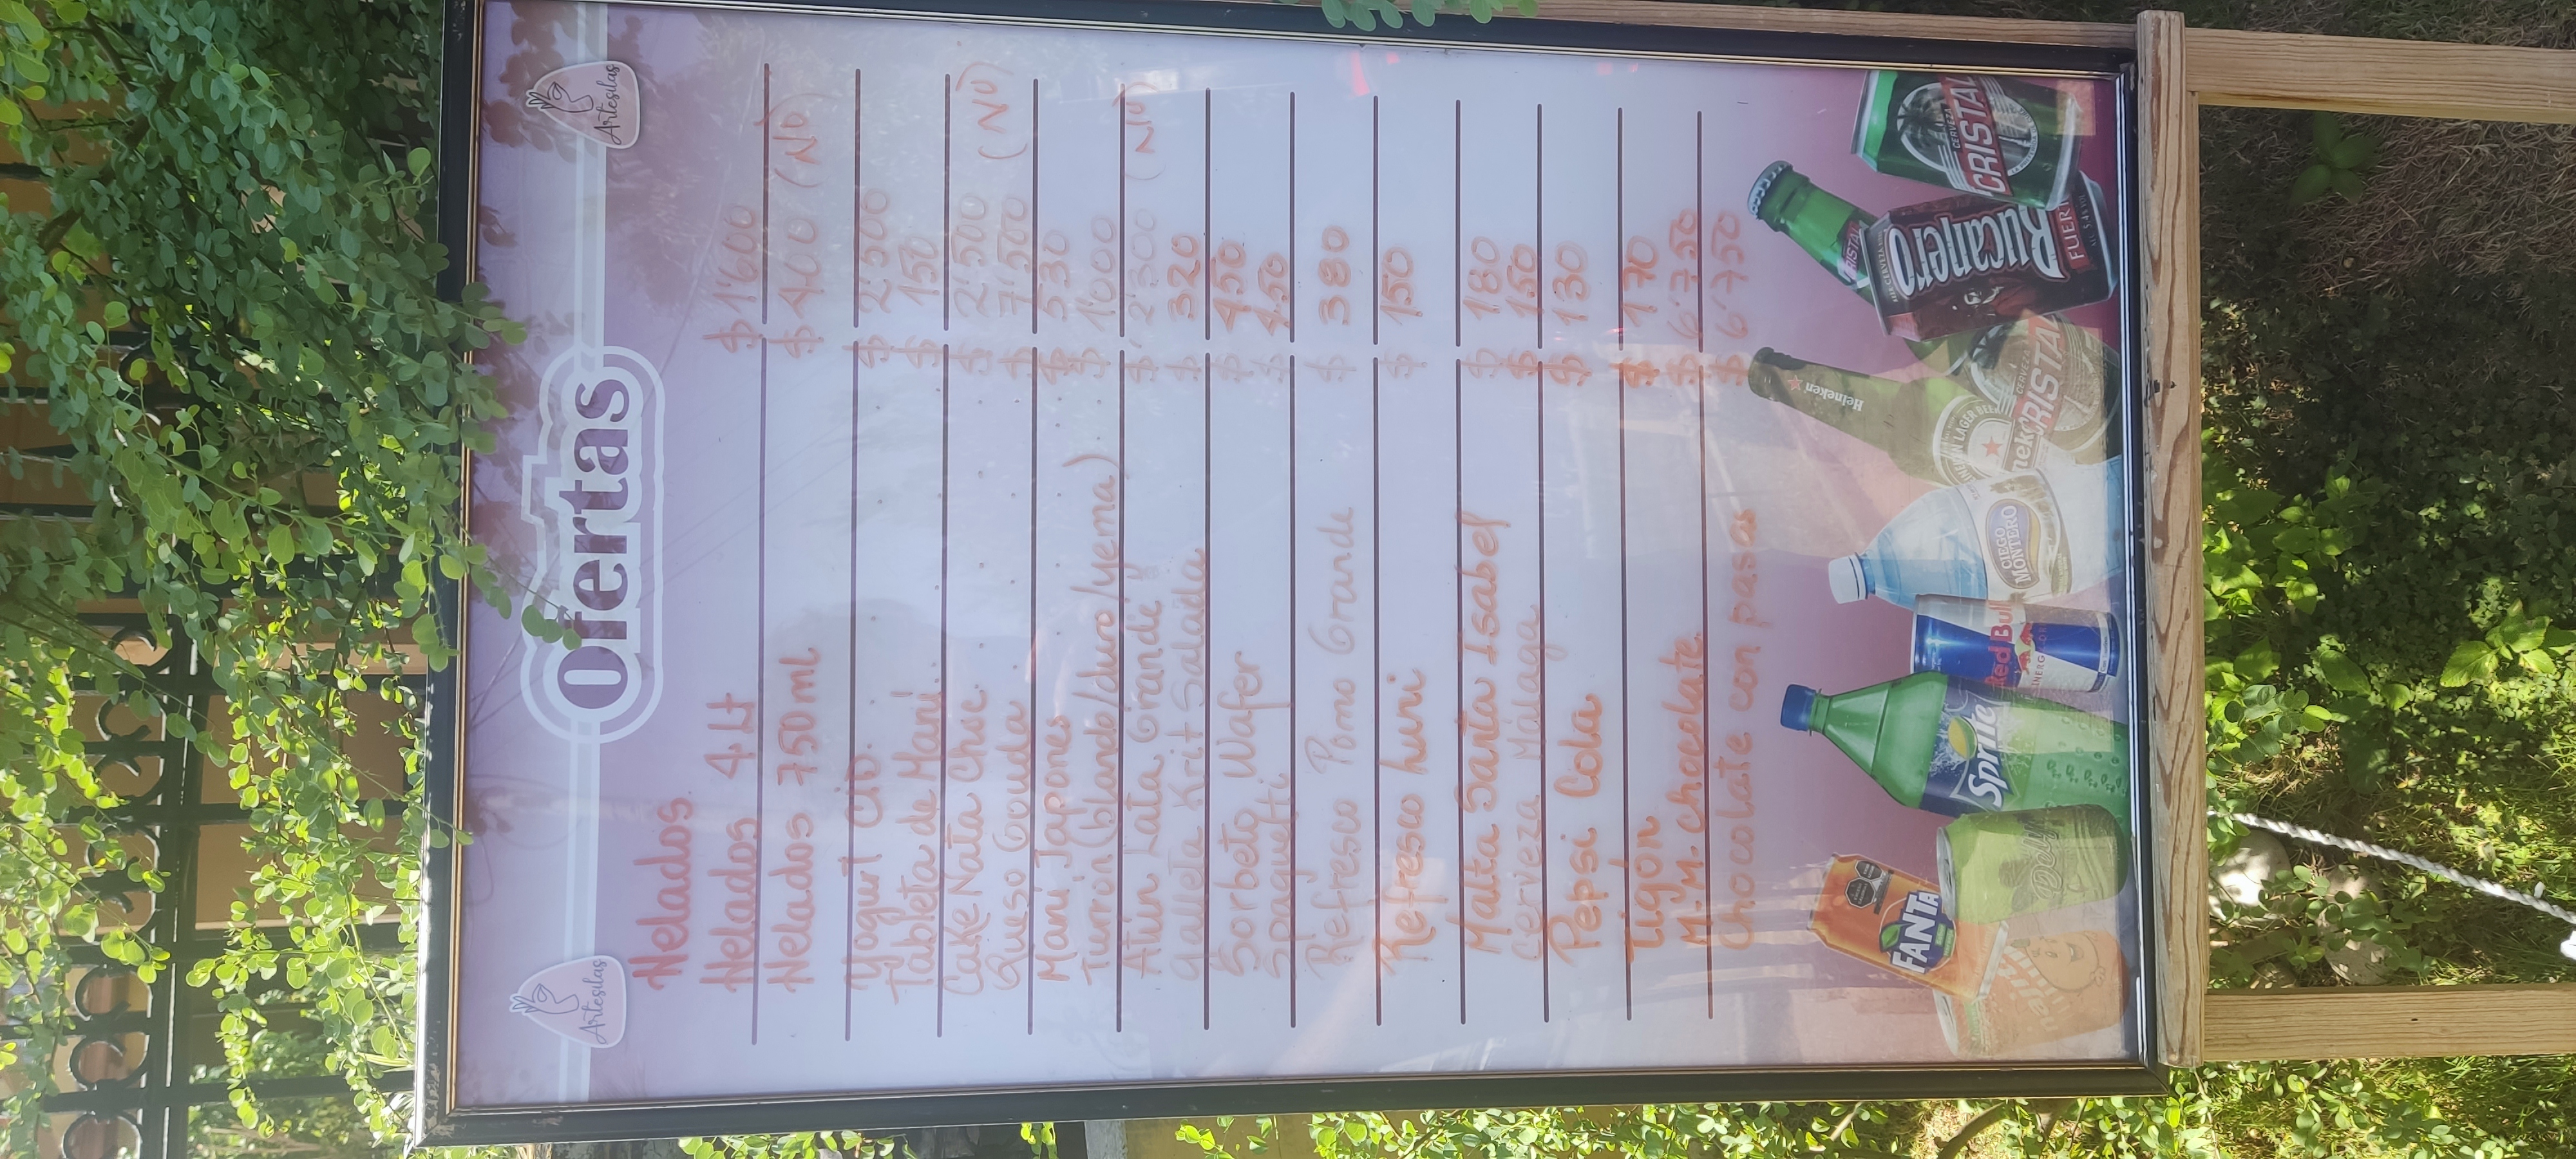 Artesilas
Ofertas
Artesilas
Helados
Helados 4 Lt $ 1'600
Helados 750 ml $ 400 (NO)
Yogurt CID. . . . . $ 2'500
Tableta de Maní. . . . . $ 150
Cake Nata Choc. . . . . $ 2'500
Queso Gouda . . . . $ 7'500 (NO)
Maní Japones . . . . $ 530
Turrón (blando/duro/yema) . . $ 1'000
Atún Lata Grande $ 2'300 (NO)
Galleta Krit Salada $ 320
Sorbeto Wafer $ 450
Spaguetti $ 450
Refresco Pomo Grande $ 380
Refresco $ 150
Malta Santa Isabel $ 180
Cerveza Málaga $ 150
Pepsi Cola $ 130
Tigón $ 170
M.M. Chocolate $ 6'750
Chocolate con pasas $ 6'750
FANTA
Sprite
Red Bull
CIEGO
MONTERO
Heineken
CERVEZA
CRISTAL
CRISTAL
Bucanero
FUERTE
CERVEZA
CRISTAL